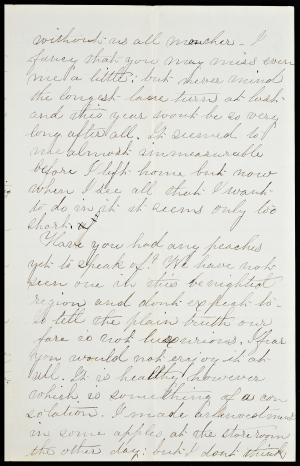 without us all moncher - I
fancy that you may miss even
me a little; but never mind
the longest lane turns at last
and this year wont be so very
long after all. It seemed to
me almost immeasurable
before I left home but now
when I see all that I want
to do in it it seems only too
short.
Have you had any peaches
yet to speak of? We have not
seen one in this benighted
region and dont expect to -
to tell the plain truth our
fare is not luxurious. I fear
you would not enjoy it at
all. It is healthy however
which is something of a con
solation. I made an investment
in some apples at the store room
the other day; but I dont think